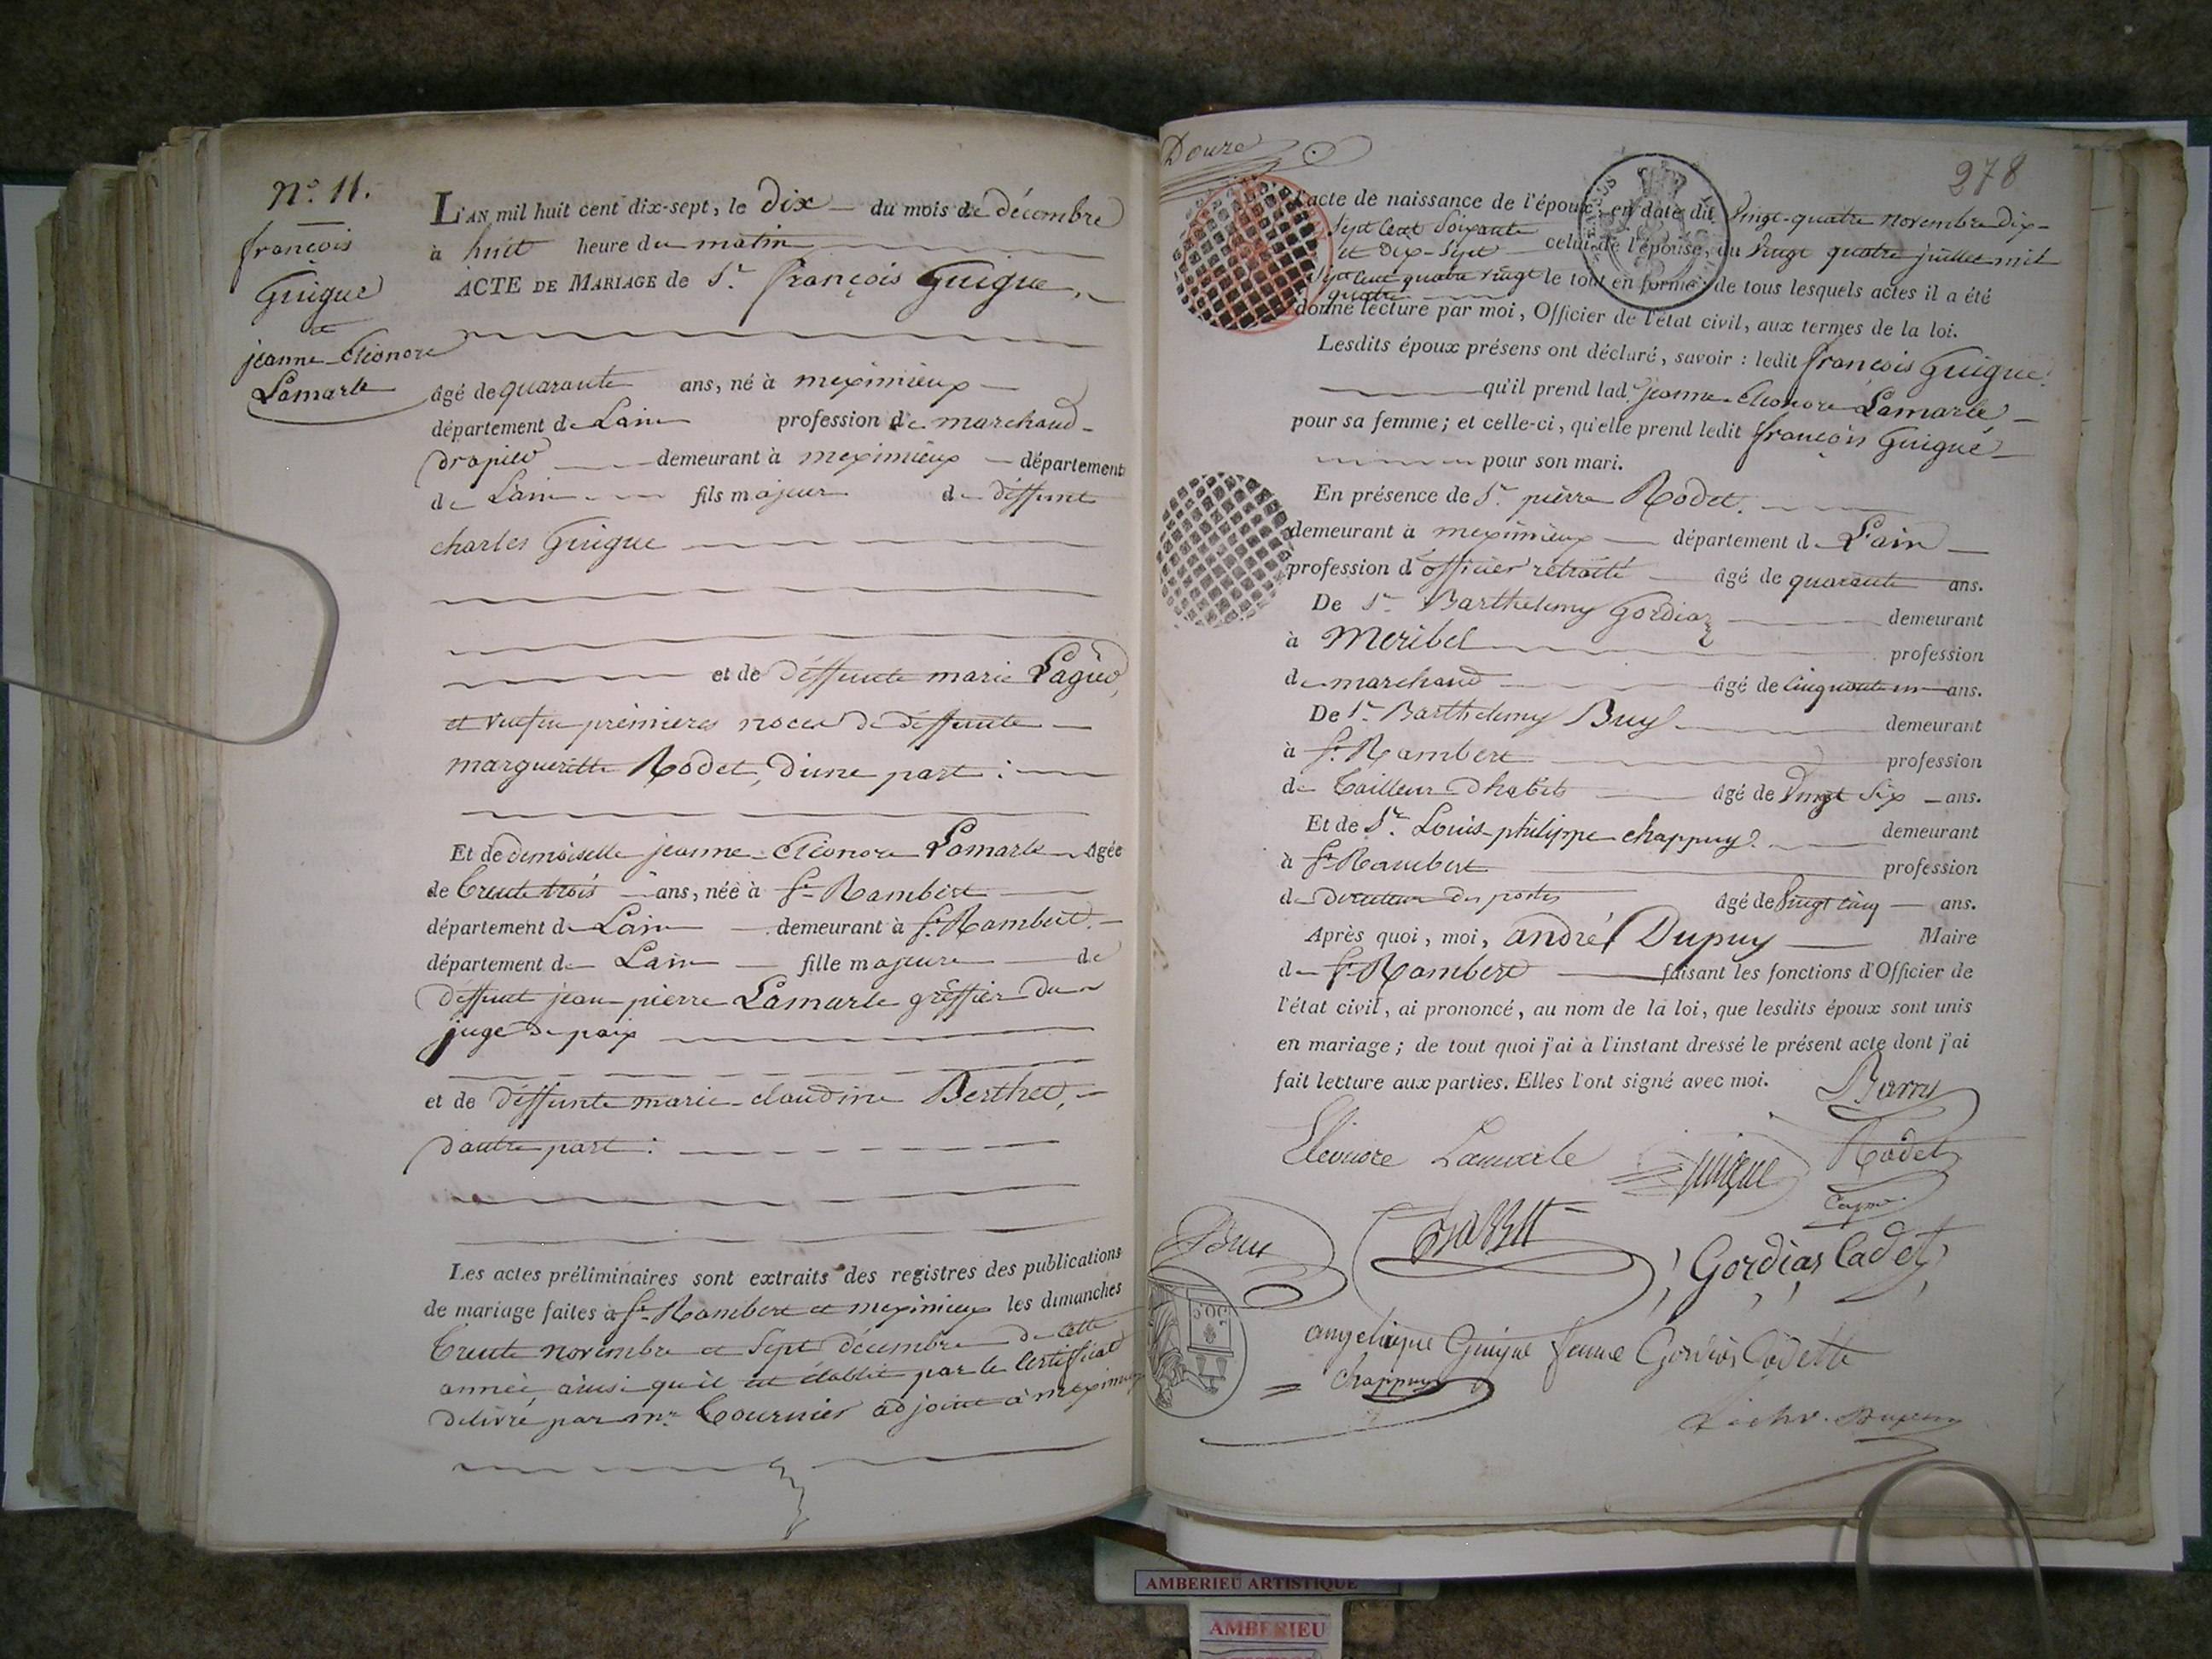 N.º 11.
françois
Guigue
et
jeanne Eléonore
Lamarle
L'AN mil huit cent dix-sept, le Dix du mois de décembre
à huit heure du matin
ACTE DE MARIAGE de Sr. françois Guigue,
âgé de quarante ans, né à meximieux
département de Lain profession de marchand
drapier demeurant à meximieux département
de L'ain fils majeur de déffunt
charles Guigue
et de déffunte marie Lagier,
et veuf en prémieres noces de déffunte
margueritte Rodet, d'une part :
Et de demoiselle jeanne Eléonore Lamarle Agée
de trente trois ans, née à St. Rambert
département de Lain demeurant à St. Rambert.
département de Lain fille majeure de
déffunt jean pierre Lamarle gréffier du
juge de paix
et de déffunte marie claudine Berthet,
d'autre part :
Les actes préliminaires sont extraits des registres des publications
de mariage faites à St. Rambert et meximieux les dimanches
trente novembre et sept décembre de cette
année, ainsi qu'il est établit par le certifficat
délivré par mr. Tournier adjoint à meximieux
Douze
278
l'acte de naissance de l'époux, en date du Vingt-quatre novembre dix-
sept cent soixante
et dix-sept celui de l'épouse, du Vingt quatre juillet mil
sept cent quatre vingt le tout en forme : de tous lesquels actes il a été
quatre
donné lecture par moi, Officier de l'état civil, aux termes de la loi.
Lesdits époux présens ont déclaré, savoir : ledit françois Guigue
qu'il prend lad. jeanne Eléonore Lamarle
pour sa femme ; et celle-ci, qu'elle prend ledit françois Guigue
pour son mari.
En présence de Sr. pierre Rodet.
demeurant à meximieux département d L'ain
profession d'officier retraité âgé de quarante ans.
De Sr. Barthelemy Gordiaz demeurant
à Meribel profession
de marchand âgé de cinquante un ans.
De Sr. Barthelemy Buy demeurant
à St. Rambert profession
de tailleur d'habits âgé de Vingt Six ans.
Et de Sr. Louis philippe chappuy demeurant
à St. Rambert profession
de directeur des postes âgé de Vingt cinq ans.
Après quoi, moi, andré Dupuy Maire
de St. Rambert faisant les fonctions d'Officier de
l'état civil, ai prononcé, au nom de la loi, que lesdits époux sont unis
en mariage ; de tout quoi j'ai à l'instant dressé le présent acte dont j'ai
fait lecture aux parties. Elles l'ont signé avec moi.
Eléonore Lamarle Guigue Rodet
Buy
Gordias Cadet
angelique Guigue femme Gordias Cadette
Chappuy
Dupuy
50 C.
AMBERIEU ARTISTIQUE
AMBERIEU